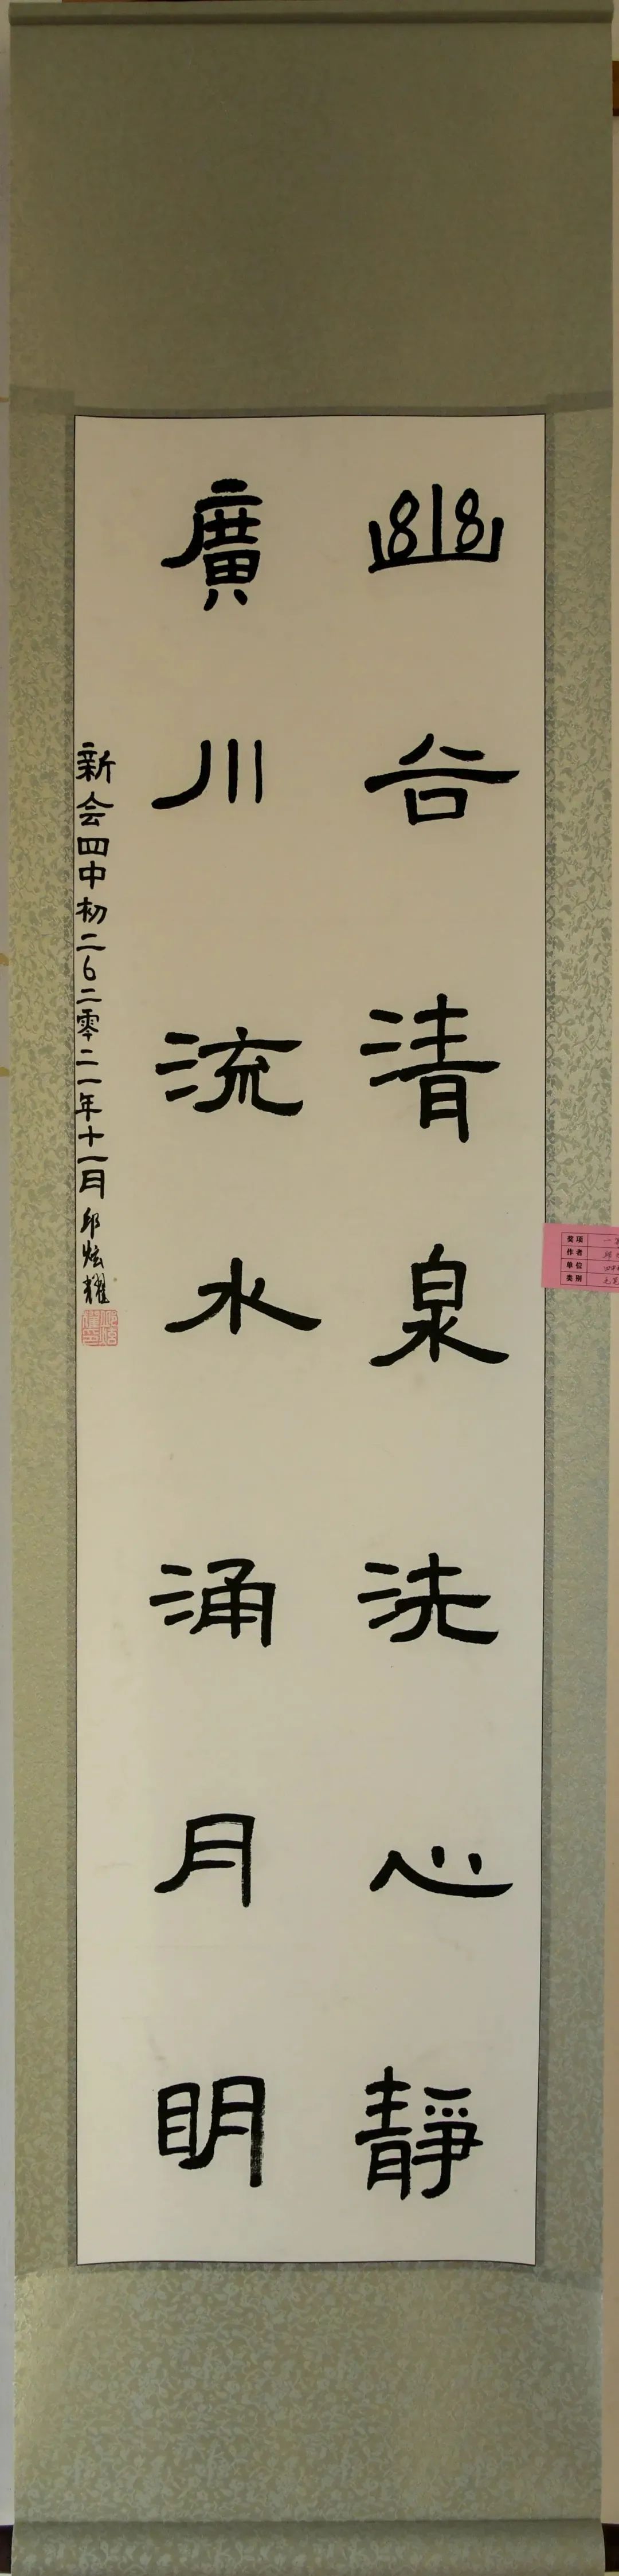 幽谷清泉洗心静
廣川流水涌月明
新会四中初二6二零二一年十一月邱炫耀
奖项 一
作者
单位
类别